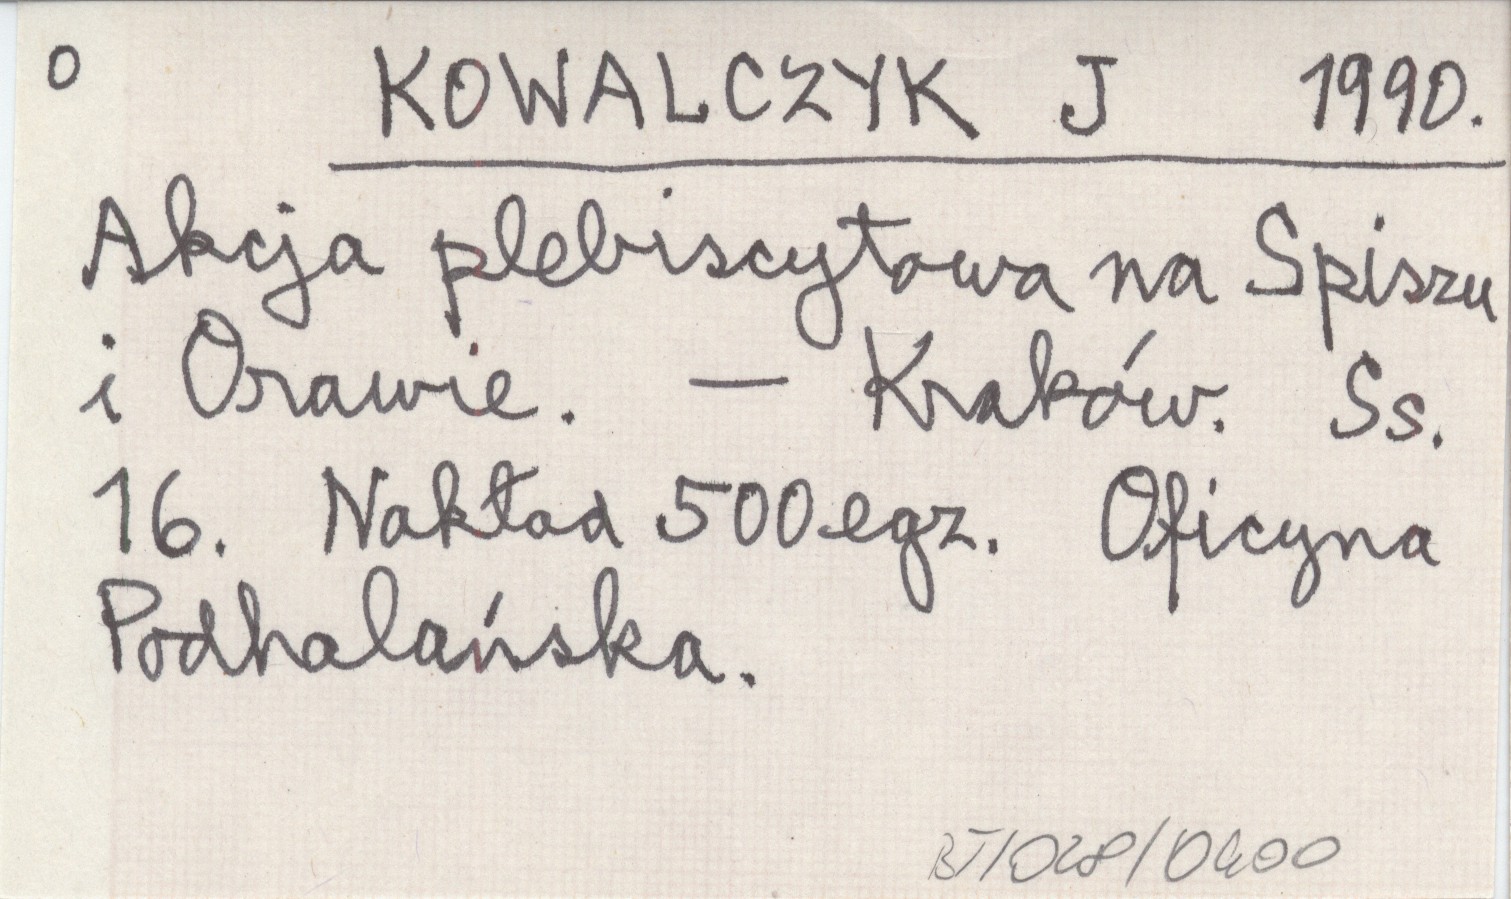 O KOWALCZYK J 1990.
Akcja plebiscytowa na Spiszu
i Orawie. — Kraków. Ss.
16. Nakład 500 egz. Oficyna
Podhalańska.
BJ/028/0400